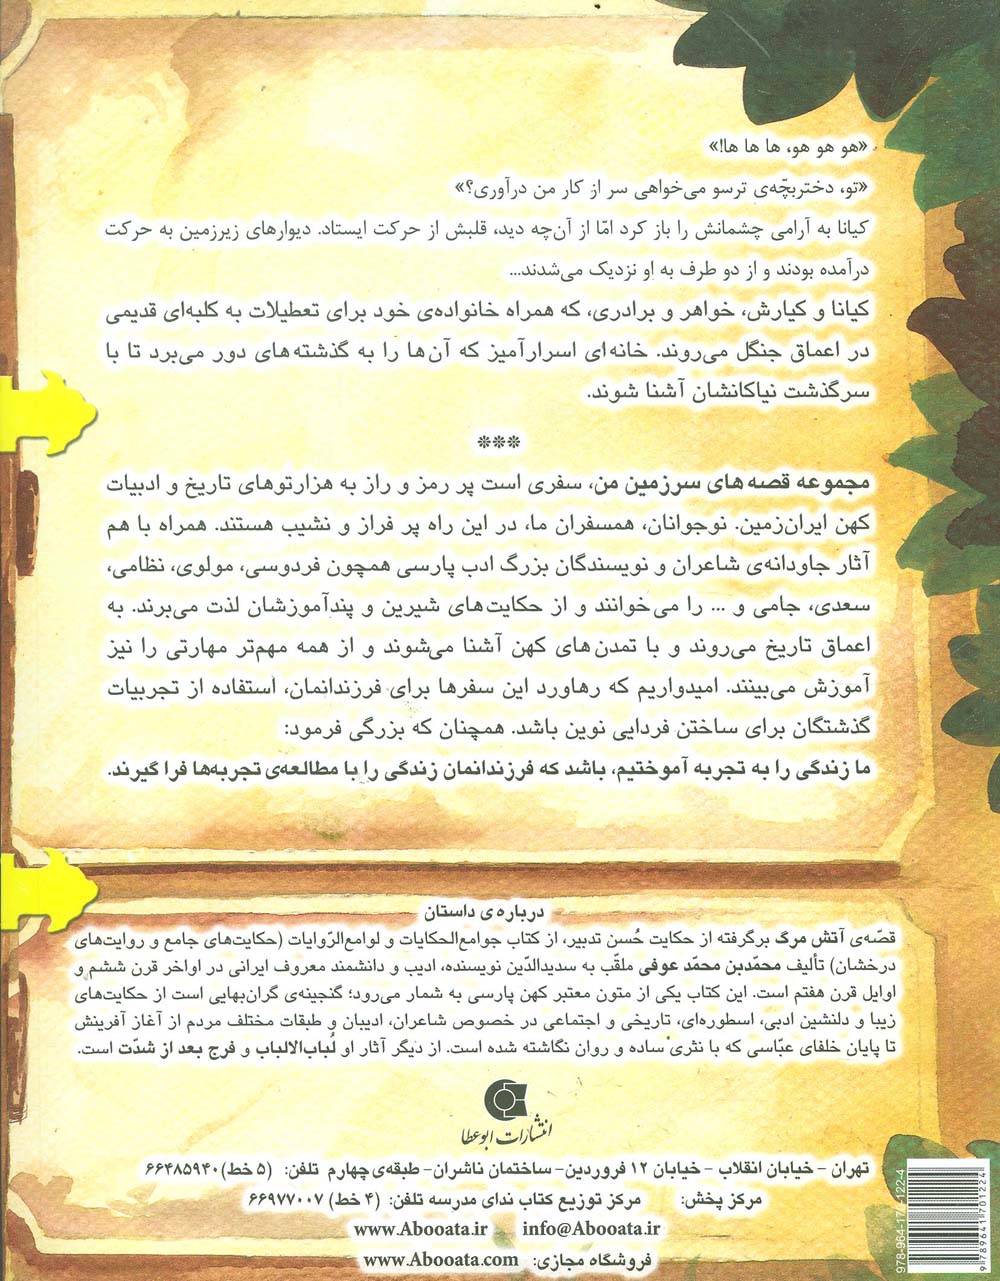 «هو هو هو، ها ها ها!»
«تو، دختربچّه‌ی ترسو می‌خواهی سر از کار من درآوری؟»
کیانا به آرامی چشمانش را باز کرد امّا از آن‌چه دید، قلبش از حرکت ایستاد. دیوارهای زیرزمین به حرکت
درآمده بودند و از دو طرف به او نزدیک می‌شدند...
کیانا و کیارش، خواهر و برادری، که همراه خانواده‌ی خود برای تعطیلات به کلبه‌ای قدیمی
در اعماق جنگل می‌روند. خانه‌ای اسرارآمیز که آن‌ها را به گذشته‌های دور می‌برد تا با
سرگذشت نیاکانشان آشنا شوند.
***
مجموعه قصه‌های سرزمین من، سفری است پر رمز و راز به هزارتوهای تاریخ و ادبیات
کهن ایران‌زمین. نوجوانان، همسفران ما، در این راه پر فراز و نشیب هستند. همراه با هم
آثار جاودانه‌ی شاعران و نویسندگان بزرگ ادب پارسی همچون فردوسی، مولوی، نظامی،
سعدی، جامی و ... را می‌خوانند و از حکایت‌های شیرین و پندآموزشان لذت می‌برند. به
اعماق تاریخ می‌روند و با تمدن‌های کهن آشنا می‌شوند و از همه مهم‌تر مهارتی را نیز
آموزش می‌بینند. امیدواریم که رهاورد این سفرها برای فرزندانمان، استفاده از تجربیات
گذشتگان برای ساختن فردایی نوین باشد. همچنان که بزرگی فرمود:
ما زندگی را به تجربه آموختیم، باشد که فرزندانمان زندگی را با مطالعه‌ی تجربه‌ها فرا گیرند.
درباره‌ی داستان
قصّه‌ی آتش مرگ برگرفته از حکایت حُسن تدبیر، از کتاب جوامع‌الحکایات و لوامع‌الرّوایات (حکایت‌های جامع و روایت‌های
درخشان) تألیف محمّدبن محمّد عوفی ملقّب به سدیدالدّین نویسنده، ادیب و دانشمند معروف ایرانی در اواخر قرن ششم و
اوایل قرن هفتم است. این کتاب یکی از متون معتبر کهن پارسی به شمار می‌رود؛ گنجینه‌ی گران‌بهایی است از حکایت‌های
زیبا و دلنشین ادبی، اسطوره‌ای، تاریخی و اجتماعی در خصوص شاعران، ادیبان و طبقات مختلف مردم از آغاز آفرینش
تا پایان خلفای عبّاسی که با نثری ساده و روان نگاشته شده است. از دیگر آثار او لُباب‌الالباب و فرج بعد از شدّت است.
انتشارات ابوعطا
تهران - خیابان انقلاب - خیابان ۱۲ فروردین- ساختمان ناشران- طبقه‌ی چهارم تلفن: (۵ خط) ۶۶۴۸۵۹۴۰
مرکز پخش: مرکز توزیع کتاب ندای مدرسه تلفن: (۴ خط) ۶۶۹۷۷۰۰۷
www.Abooata.ir info@Abooata.ir
فروشگاه مجازی: www.Abooata.com
978-964-17 -122-4
9 789641 701224